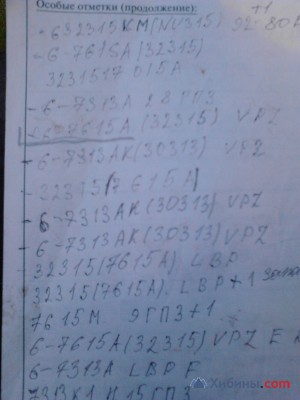 Особые отметки (продолжение):
- 632315КМ(NU315) 92-80
- 6-7615А (32315)
3231517 015А
- 6-7313А 28 ГПЗ
- 6-7615А (32315) VPZ
- 6-7313АК(30313) VPZ
- 32315(7615А)
- 6-7313АК(30313) VPZ
- 6-7313АК(30313) VPZ
- 32315(7615А) LBP
32315(7615А). LBP+1
7615М 9ГПЗ+1
6-7615А(32315) VPZ Е
6-7313А LBP F
15 ГПЗ
Хибины.com